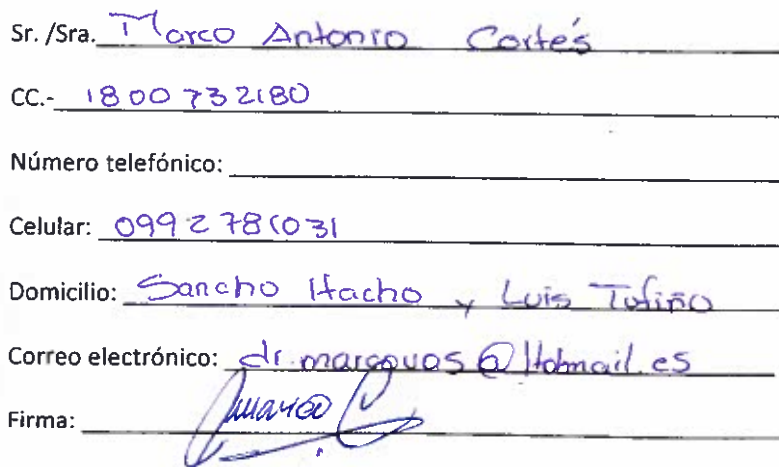 Sr. /Sra. Marco Antonio Cortés
CC.- 1800732180
Número telefónico:
Celular: 0992781031
Domicilio: Sancho Hacho y Luis Tufiño
Correo electrónico: dr.marcovos@Hotmail.es
Firma: Marco C